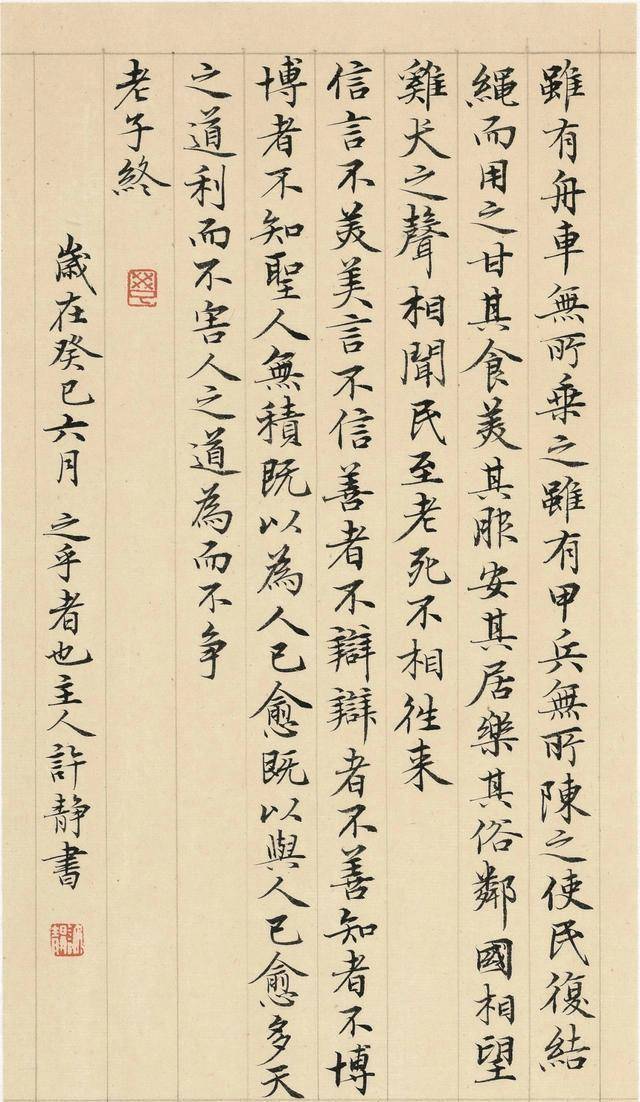 雖有舟車無所乗之雖有甲兵無所陳之使民復結
繩而用之甘其食美其服安其居樂其俗鄰國相望
雞犬之聲相聞民至老死不相往来
信言不美美言不信善者不辯辯者不善知者不博
博者不知聖人無積既以為人已愈既以與人已愈多天
之道利而不害人之道為而不争
老子終
歲在癸巳六月之乎者也主人許静書